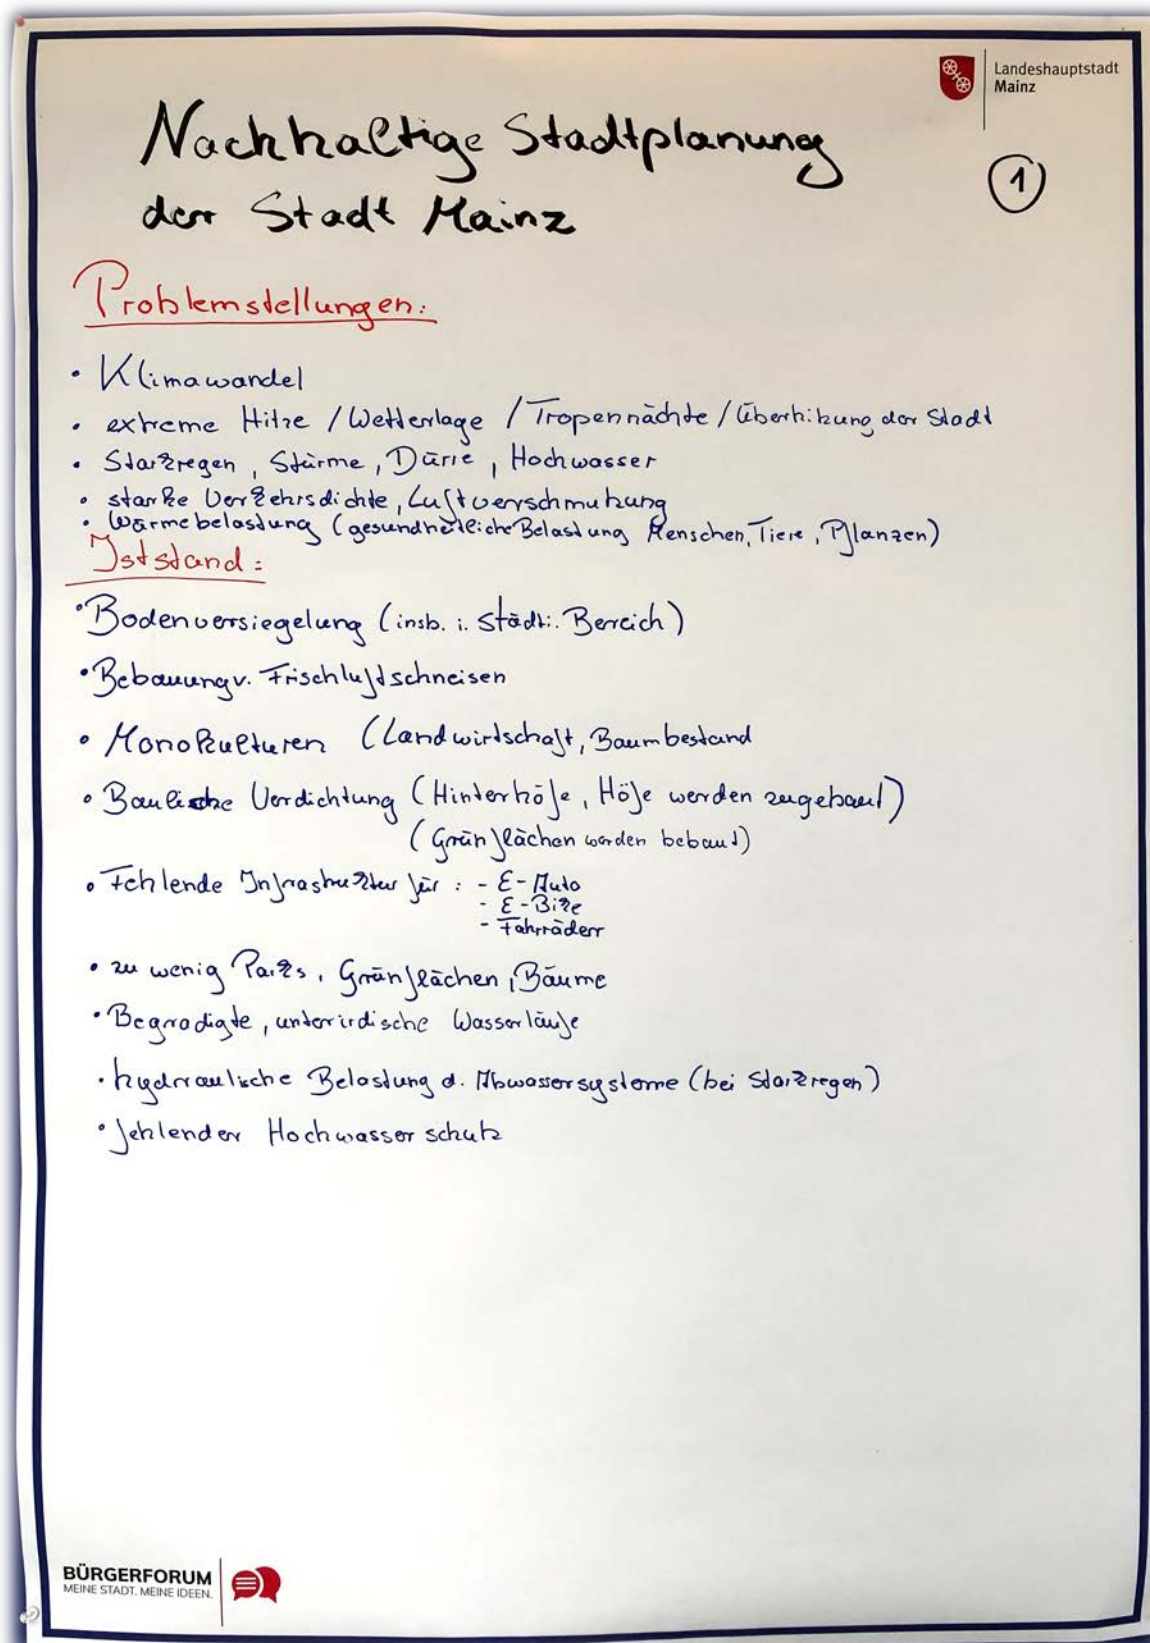 Landeshauptstadt
Mainz
Nachhaltige Stadtplanung
der Stadt Mainz
1
Problemstellungen:
• Klimawandel
• extreme Hitze / Wetterlage / Tropennächte / Überhitzung der Stadt
• Starkregen, Stürme, Dürre, Hochwasser
• starke Verkehrsdichte, Luftverschmutzung
• Wärmebelastung (gesundheitliche Belastung Menschen, Tiere, Pflanzen)
Iststand:
• Bodenversiegelung (insb. i. städt. Bereich)
• Bebauung v. Frischluftschneisen
• Monokulturen (Landwirtschaft, Baumbestand
• Bauliche Verdichtung (Hinterhöfe, Höfe werden zugebaut)
(Grünflächen werden bebaut)
• Fehlende Infrastruktur für : - E-Auto
- E-Bike
- Fahrräder
• zu wenig Parks, Grünflächen, Bäume
• Begradigte, unterirdische Wasserläufe
• hydraulische Belastung d. Abwassersysteme (bei Starkregen)
• fehlender Hochwasserschutz
BÜRGERFORUM
MEINE STADT. MEINE IDEEN.